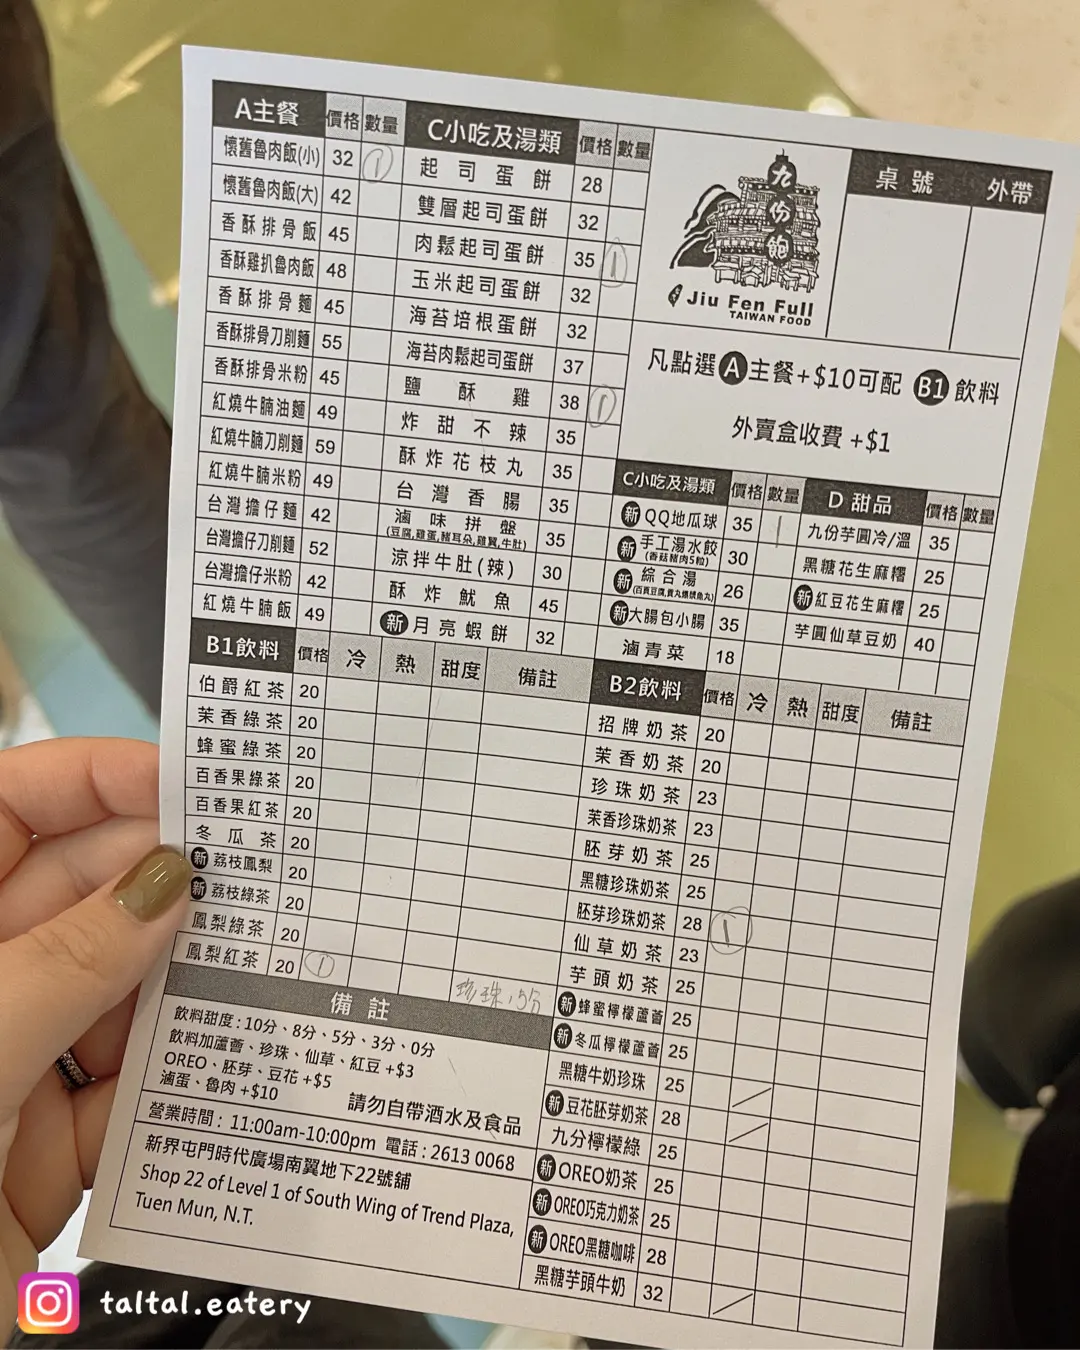 A主餐 價格 數量
懷舊魯肉飯(小) 32 1
懷舊魯肉飯(大) 42
香酥排骨飯 45
香酥雞扒魯肉飯 48
香酥排骨麵 45
香酥排骨刀削麵 55
香酥排骨米粉 45
紅燒牛腩油麵 49
紅燒牛腩刀削麵 59
紅燒牛腩米粉 49
台灣擔仔麵 42
台灣擔仔刀削麵 52
台灣擔仔米粉 42
紅燒牛腩飯 49
C小吃及湯類 價格 數量
起司蛋餅 28
雙層起司蛋餅 32
肉鬆起司蛋餅 35 1
玉米起司蛋餅 32
海苔培根蛋餅 32
海苔肉鬆起司蛋餅 37
鹽酥雞 38 1
炸甜不辣 35
酥炸花枝丸 35
台灣香腸 35
滷味拼盤 35
(豆腐,雞蛋,豬耳朵,雞翼,牛肚)
涼拌牛肚(辣) 30
酥炸魷魚 45
新 月亮蝦餅 32
九份飽
Jiu Fen Full
TAIWAN FOOD
桌號 外帶
凡點選A主餐+$10可配 B1飲料
外賣盒收費 +$1
C小吃及湯類 價格 數量
新 QQ地瓜球 35 1
新 手工湯水餃 30
(香菇豬肉5粒)
新 綜合湯 26
新 大腸包小腸 35
滷青菜 18
D 甜品 價格 數量
九份芋圓冷/溫 35
黑糖花生麻糬 25
新 紅豆花生麻糬 25
芋圓仙草豆奶 40
B1飲料 價格 冷 熱 甜度 備註
伯爵紅茶 20
茉香綠茶 20
蜂蜜綠茶 20
百香果綠茶 20
百香果紅茶 20
冬瓜茶 20
新 荔枝鳳梨 20
新 荔枝綠茶 20
鳳梨綠茶 20
鳳梨紅茶 20 1
珍珠,5分
B2飲料 價格 冷 熱 甜度 備註
招牌奶茶 20
茉香奶茶 20
珍珠奶茶 23
茉香珍珠奶茶 23
胚芽奶茶 25
黑糖珍珠奶茶 25
胚芽珍珠奶茶 28 1
仙草奶茶 23
芋頭奶茶 25
新 蜂蜜檸檬蘆薈 25
新 冬瓜檸檬蘆薈 25
黑糖牛奶珍珠 25
新 豆花胚芽奶茶 28
九分檸檬綠 25
新 OREO奶茶 25
新 OREO巧克力奶茶 25
新 OREO黑糖咖啡 28
黑糖芋頭牛奶 32
備註
飲料甜度:10分、8分、5分、3分、0分
飲料加蘆薈、珍珠、仙草、紅豆 +$3
OREO、胚芽、豆花 +$5
滷蛋、魯肉 +$10
請勿自帶酒水及食品
營業時間: 11:00am-10:00pm 電話:2613 0068
新界屯門時代廣場南翼地下22號舖
Shop 22 of Level 1 of South Wing of Trend Plaza,
Tuen Mun, N.T.
taltal.eatery